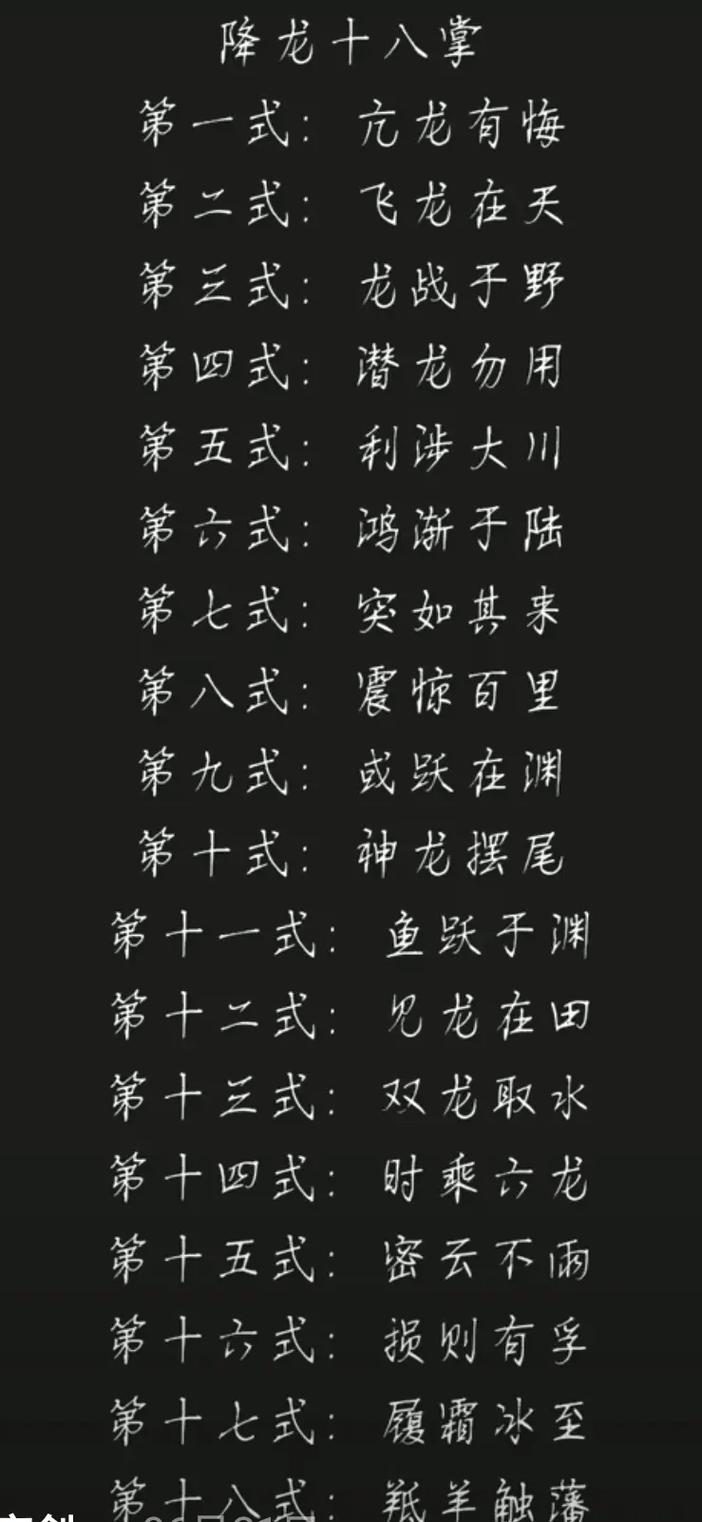 降龙十八掌
第一式：亢龙有悔
第二式：飞龙在天
第三式：龙战于野
第四式：潜龙勿用
第五式：利涉大川
第六式：鸿渐于陆
第七式：突如其来
第八式：震惊百里
第九式：或跃在渊
第十式：神龙摆尾
第十一式：鱼跃于渊
第十二式：见龙在田
第十三式：双龙取水
第十四式：时乘六龙
第十五式：密云不雨
第十六式：损则有孚
第十七式：履霜冰至
第十八式：羝羊触藩